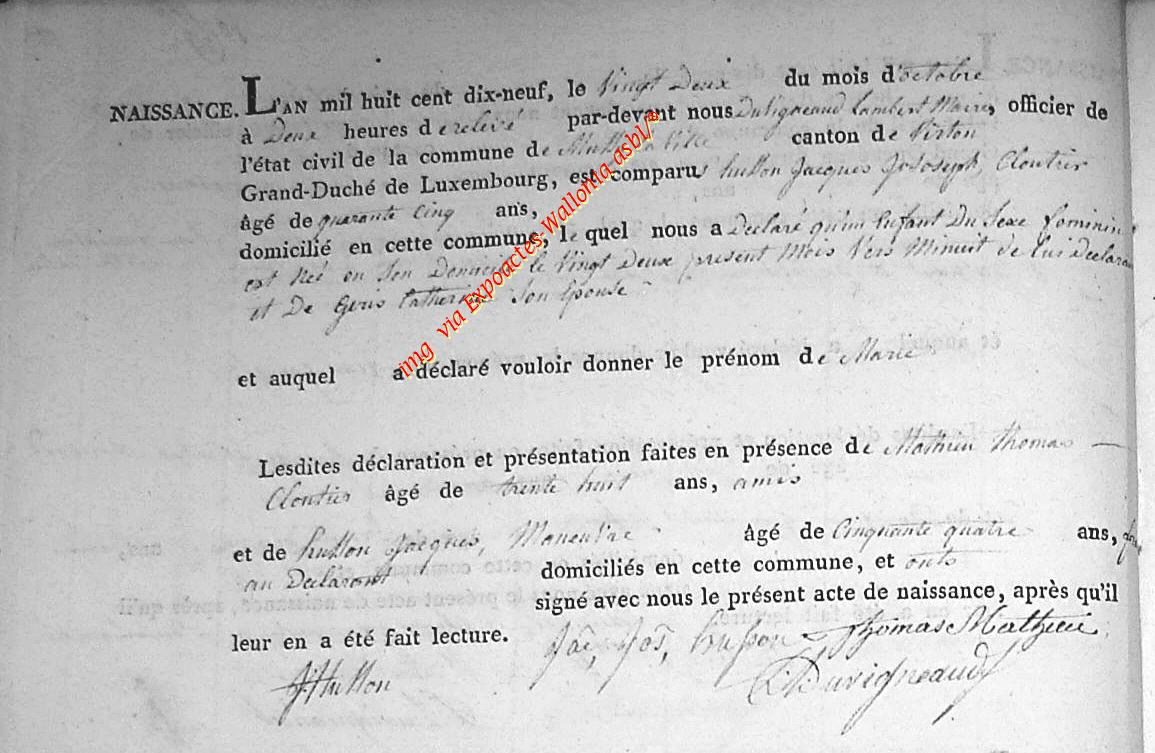 NAISSANCE. L'AN mil huit cent dix-neuf, le Vingt Deux du mois d'octobre
à Deux heures de relevé par-devant nous Duvigneaud Lambert Maire, officier de
l'état civil de la commune de canton de Virton
Grand-Duché de Luxembourg, est comparu husson Jacques Jososeph, Cloutier
âgé de quarante Cinq ans,
domicilié en cette commune, le quel nous a Declaré qu'un Enfant Du Sexe feminin
est Né en Son Domicile le Vingt Deux present Mois Vers Minuit de lui Declarant
et De Gerus Catherine Son Epouse
et auquel a déclaré vouloir donner le prénom de Marie
Lesdites déclaration et présentation faites en présence de Mathieu thomas
Cloutier âgé de trente huit ans, amis
et de husson Jacques, âgé de Cinquante quatre ans,
au Declarant domiciliés en cette commune, et onts
signé avec nous le présent acte de naissance, après qu'il
leur en a été fait lecture. Jac, Jos, husson Thomas Mathieu
J husson Duvigneaud
img via Expoactes-Wallonia asbl/